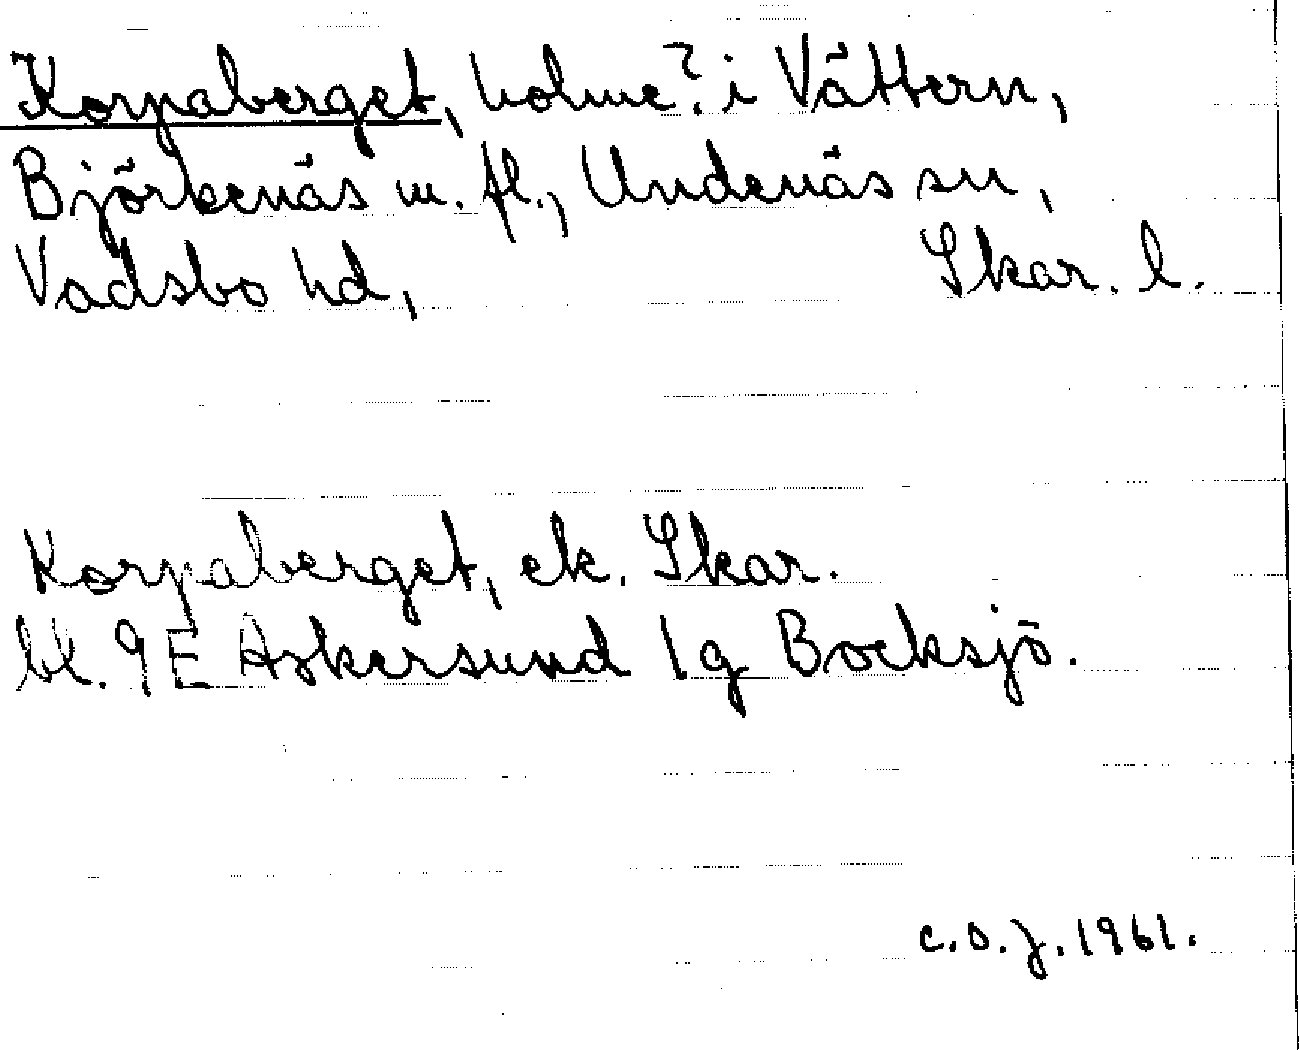 Korpaberget, holme? i Vättern,
Björkenäs m. fl., Undenäs sn,
Vadsbo hd, Skar. l.
Korpaberget, ek. Skar.
bl. 9E Askersund 1g Bocksjö.
C.O.J. 1961.